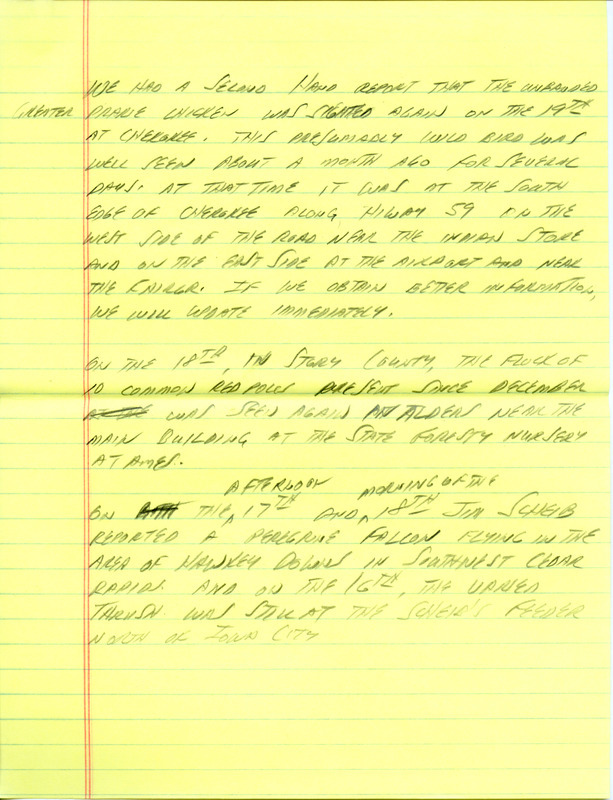 WE HAD A SECOND HAND REPORT THAT THE UNBANDED
GREATER PRARIE CHICKEN WAS SIGHTED AGAIN ON THE 19TH
AT CHEROKEE. THIS PRESUMABLY WILD BIRD WAS
WELL SEEN ABOUT A MONTH AGO FOR SEVERAL
DAYS. AT THAT TIME IT WAS AT THE SOUTH
EDGE OF CHEROKEE ALONG HIWAY 59 ON THE
WEST SIDE OF THE ROAD NEAR THE INDIAN STORE
AND ON THE EAST SIDE AT THE AIRPORT AND NEAR
THE . IF WE OBTAIN BETTER INFORMATION,
WE WILL UPDATE IMMEDIATELY.
ON THE 18TH, IN STORY COUNTY, THE FLOCK OF
10 COMMON REDPOLLS PRESENT SINCE DECEMBER
WAS SEEN AGAIN AT ALDERS NEAR THE
MAIN BUILDING AT THE STATE FORESTY NURSERY
AT AMES.
AFTERNOON MORNING OF THE
ON THE 17TH AND 18TH JIM SCHEIB
REPORTED A PEREGRINE FALCON FLYING IN THE
AREA OF HAWKEY DOWNS IN SOUTHWEST CEDAR
RAPIDS. AND ON THE 16TH, THE VARIED
THRUSH WAS STILL AT THE SCHEIB'S FEEDER
NORTH OF IOWA CITY